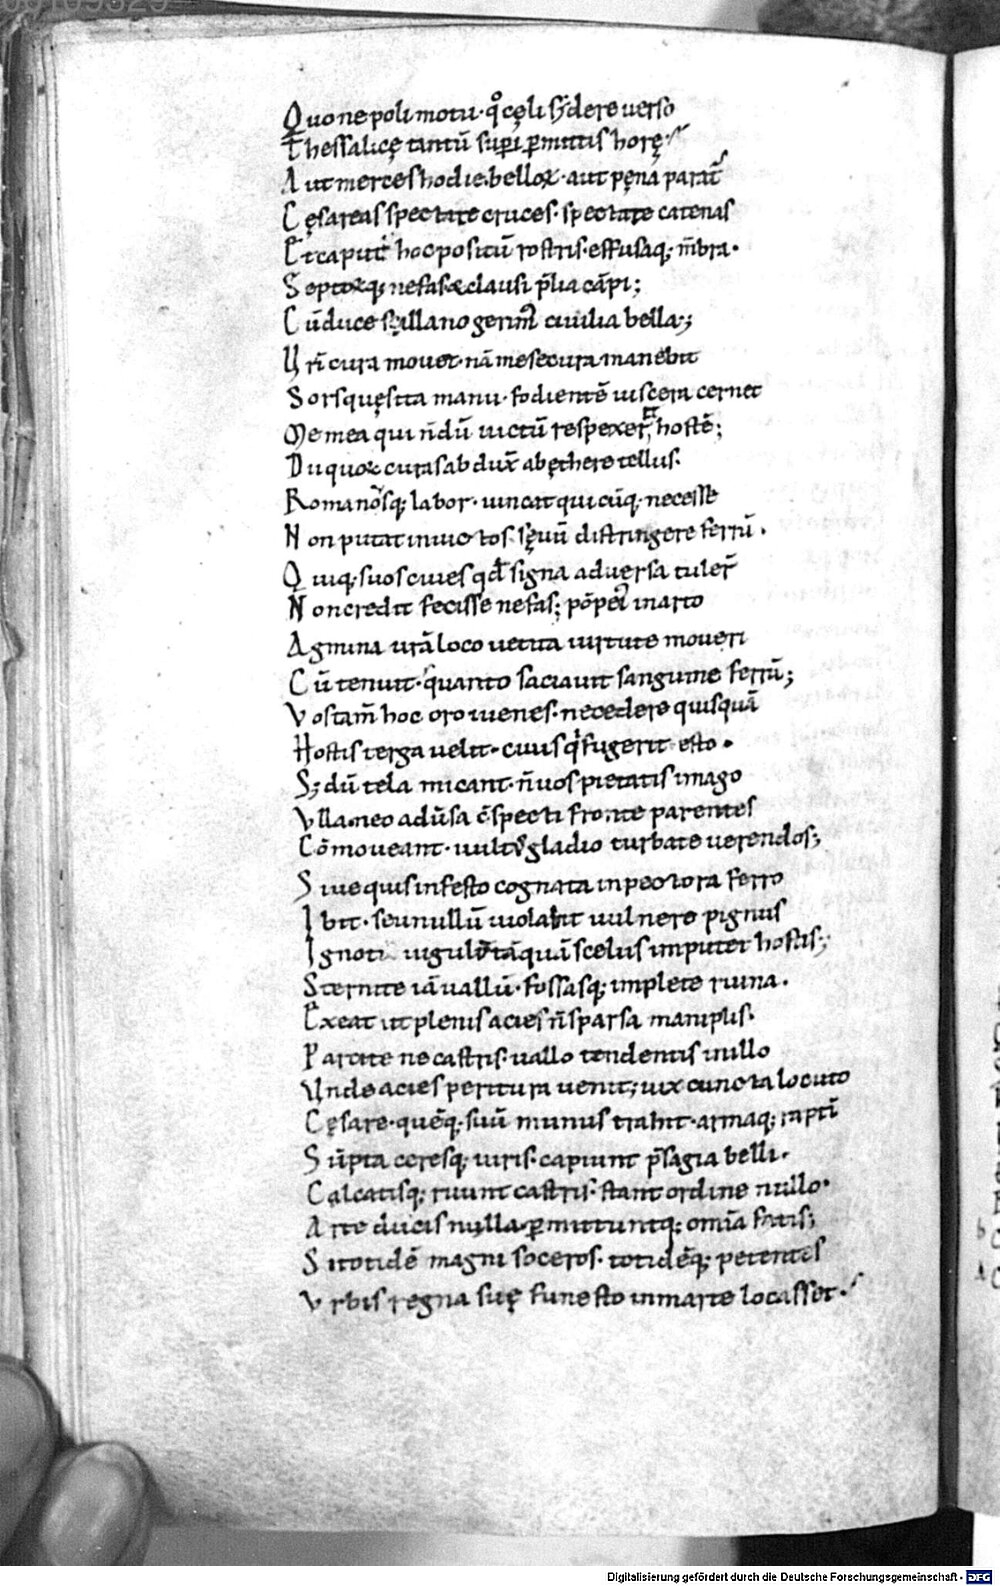 Quone poli motu· qͦ cęli sydere uerso
Thessalicę tantū suꝑi ꝑmittis horę·
Aut merces hodie belloꝝ· aut pęna parat᷑
Cęsareas spectate cruces· spectate catenas
Et caput hoc positū rostris· effusaq; m̄bra·
Septorūq; nefas & clausi p̄lia cāpi;
Cū duce syllano gerim᷒ ciuilia bella;
Ur̄i cura mouet· nā me secura manebit
Sors quęsita manu· fodientē uiscera cernet
Me mea qui n̄dū uictū respexerit hostē;
Di quoꝝ curas abdux̄ ab ęthere tellus·
Romanꝰsq; labor· uincat quicūq; necesse
Non putat in uictos· sęuū distringere ferrū·
Quiq; suos ciues qd̄ signa aduersa tuler̄
Non credit fecisse nefas; pōpei᷒ in arto
Agmina ur̄a loco uetita uirtute moueri
Cū tenuit· quanto saciauit sanguine ferrū;
Vos tam̄ hoc oro iuenes· ne cedere quisquā
Hostis terga uelit· ciuis qͥ fugerit esto·
S; dū tela micant· n̄ uos pietatis imago
Vlla nec adūsa c̄specti fronte parentes
Cōmoueant· uult᷒ gladio turbate uerendos;
Siue quis infesto cognata in pectora ferro
Ibit· seu nullū uiolabit uulnere pignus
Ignoti iugulū tāquā scelus imputet hostis;
Sternite iā uallū· fossasq; implete ruina·
Exeat ut plenis acies n̄ sparsa maniplis·
Parcite ne castris· uallo tendentis in illo
Unde acies peritura uenit; uix cuncta locuto
Cęsare· quēq; suū munus trahit· armaq; raptī
Sūpta ceresq; uiris· capiunt p̄sagia belli·
Calcatisq; ruunt castris· stant ordine nullo·
Arte ducis nulla· ꝑmittuntq; omīa fatis;
Si totidē magni soceros· totidēq; petentes
Vrbis regna suę funesto in marte locasset·
Digitalisierung gefördert durch die Deutsche Forschungsgemeinschaft - DFG